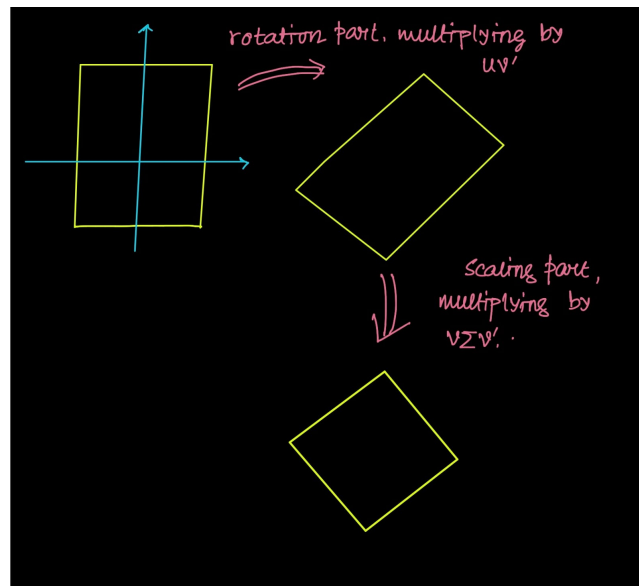 rotation part, multiplying by
UV'
scaling part,
multiplying by
VΣV'.